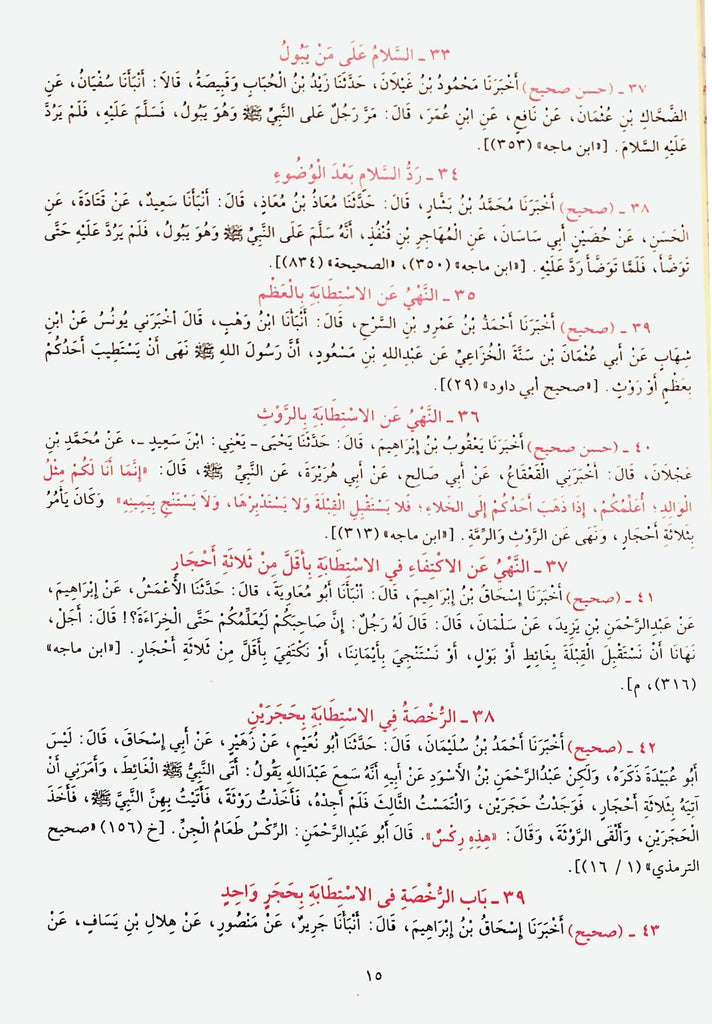 ٣٣ ـ السَّلامُ عَلَى مَنْ يَبُولُ
٣٧ ـ (حسن صحيح) أَخْبَرَنَا مَحْمُودُ بْنُ غَيْلَانَ، حَدَّثَنَا زَيْدُ بْنُ الْحُبَابِ وَقَبِيصَةُ، قَالَا: أَنْبَأَنَا سُفْيَانُ، عَنِ
الضَّحَّاكِ بْنِ عُثْمَانَ، عَنْ نَافِعٍ، عَنِ ابْنِ عُمَرَ، قَالَ: مَرَّ رَجُلٌ عَلى النَّبِيِّ ﷺ وَهُوَ يَبُولُ، فَسَلَّمَ عَلَيْهِ، فَلَمْ يَرُدَّ
عَلَيْهِ السَّلامَ. [«ابن ماجه» (٣٥٣)].
٣٤ ـ رَدُّ السَّلامِ بَعْدَ الْوُضُوءِ
٣٨ ـ (صحيح) أَخْبَرَنَا مُحَمَّدُ بْنُ بَشَّارٍ، قَالَ: حَدَّثَنَا مُعَاذُ بْنُ مُعَاذٍ، قَالَ: أَنْبَأَنَا سَعِيدٌ، عَنْ قَتَادَةَ، عَنِ
الْحَسَنِ، عَنْ حُضَيْنٍ أَبِي سَاسَانَ، عَنِ الْمُهَاجِرِ بْنِ قُنْفُذٍ، أَنَّهُ سَلَّمَ عَلَى النَّبِيِّ ﷺ وَهُوَ يَبُولُ، فَلَمْ يَرُدَّ عَلَيْهِ حَتَّى
تَوَضَّأَ، فَلَمَّا تَوَضَّأَ رَدَّ عَلَيْهِ. [«ابن ماجه» (٣٥٠)، «الصحيحة» (٨٣٤)].
٣٥ ـ النَّهْيُ عَنِ الاسْتِطَابَةِ بِالْعَظْمِ
٣٩ ـ (صحيح) أَخْبَرَنَا أَحْمَدُ بْنُ عَمْرِو بْنِ السَّرْحِ، قَالَ: أَنْبَأَنَا ابْنُ وَهْبٍ، قَالَ أَخْبَرَنِي يُونُسُ عَنْ ابْنِ
شِهَابٍ عَنْ أَبي عُثْمَانَ بْنِ سَنَّةَ الْخُزَاعِيِّ عَنْ عَبدِاللهِ بْنِ مَسْعُودٍ، أَنَّ رَسُولَ اللهِ ﷺ نَهَى أَنْ يَسْتَطِيبَ أَحَدُكُمْ
بِعَظْمٍ أَوْ رَوْثٍ. [«صحيح أبي داود» (٢٩)].
٣٦ ـ النَّهْيُ عَنِ الاسْتِطَابَةِ بِالرَّوْثِ
٤٠ ـ (حسن صحيح) أَخْبَرَنَا يَعْقُوبُ بْنُ إِبْرَاهِيمَ، قَالَ: حَدَّثَنَا يَحْيَى ـ يَعْنِي: ابْنَ سَعِيدٍ ـ، عَنْ مُحَمَّدِ بْنِ
عَجْلَانَ، قَالَ: أَخْبَرَنِي الْقَعْقَاعُ، عَنْ أَبِي صَالِحٍ، عَنْ أَبِي هُرَيْرَةَ، عَنِ النَّبِيِّ ﷺ، قَالَ: «إِنَّمَا أَنَا لَكُمْ مِثْلُ
الْوَالِدِ؛ أُعَلِّمُكُمْ، إِذَا ذَهَبَ أَحَدُكُمْ إِلَى الْخَلاءِ؛ فَلا يَسْتَقْبِلِ الْقِبْلَةَ وَلا يَسْتَدْبِرْهَا، وَلا يَسْتَنْجِ بِيَمِينِهِ» وَكَانَ يَأْمُرُ
بِثَلاثَةِ أَحْجَارٍ، وَنَهَى عَنِ الرَّوْثِ وَالرِّمَّةِ. [«ابن ماجه» (٣١٣)].
٣٧ ـ النَّهْيُ عَنِ الاكْتِفَاءِ فِي الاسْتِطَابَةِ بِأَقَلَّ مِنْ ثَلاثَةِ أَحْجَارٍ
٤١ ـ (صحيح) أَخْبَرَنَا إِسْحَاقُ بْنُ إِبْرَاهِيمَ، قَالَ: أَنْبَأَنَا أَبُو مُعَاوِيَةَ، قَالَ: حَدَّثَنَا الأَعْمَشُ، عَنْ إِبْرَاهِيمَ،
عَنْ عَبدِالرَّحْمَنِ بْنِ يَزِيدَ، عَنْ سَلْمَانَ، قَالَ: قَالَ لَهُ رَجُلٌ: إِنَّ صَاحِبَكُمْ لَيُعَلِّمُكُمْ حَتَّى الْخِرَاءَةَ؟! قَالَ: أَجَلْ،
نَهَانَا أَنْ نَسْتَقْبِلَ الْقِبْلَةَ بِغَائِطٍ أَوْ بَوْلٍ، أَوْ نَسْتَنْجِيَ بِأَيْمَانِنَا، أَوْ نَكْتَفِيَ بِأَقَلَّ مِنْ ثَلاثَةِ أَحْجَارٍ. [«ابن ماجه»
(٣١٦)، م].
٣٨ ـ الرُّخْصَةُ فِي الاسْتِطَابَةِ بِحَجَرَيْنِ
٤٢ ـ (صحيح) أَخْبَرَنَا أَحْمَدُ بْنُ سُلَيْمَانَ، قَالَ: حَدَّثَنَا أَبُو نُعَيْمٍ، عَنْ زُهَيْرٍ، عَنْ أَبِي إِسْحَاقَ، قَالَ: لَيْسَ
أَبُو عُبَيْدَةَ ذَكَرَهُ، وَلَكِنْ عَبْدُالرَّحْمَنِ بْنُ الأَسْوَدِ عَنْ أَبِيهِ أَنَّهُ سَمِعَ عَبْدَاللهِ يَقُولُ: أَتَى النَّبِيُّ ﷺ الْغَائِطَ، وَأَمَرَنِي أَنْ
آتِيَهُ بِثَلاثَةِ أَحْجَارٍ، فَوَجَدْتُ حَجَرَيْنِ، وَالْتَمَسْتُ الثَّالِثَ فَلَمْ أَجِدْهُ، فَأَخَذْتُ رَوْثَةً، فَأَتَيْتُ بِهِنَّ النَّبِيَّ ﷺ، فَأَخَذَ
الْحَجَرَيْنِ، وَأَلْقَى الرَّوْثَةَ، وَقَالَ: «هٰذِهِ رِكْسٌ». قَالَ أَبُو عَبدِالرَّحْمَنِ: الرِّكْسُ طَعَامُ الْجِنِّ. [خ (١٥٦) «صحيح
الترمذي» (١ / ١٦)].
٣٩ ـ بَابُ الرُّخْصَةِ فِي الاسْتِطَابَةِ بِحَجَرٍ وَاحِدٍ
٤٣ ـ (صحيح) أَخْبَرَنَا إِسْحَاقُ بْنُ إِبْرَاهِيمَ، قَالَ: أَنْبَأَنَا جَرِيرٌ، عَنْ مَنْصُورٍ، عَنْ هِلالِ بْنِ يَسَافٍ، عَنْ
١٥